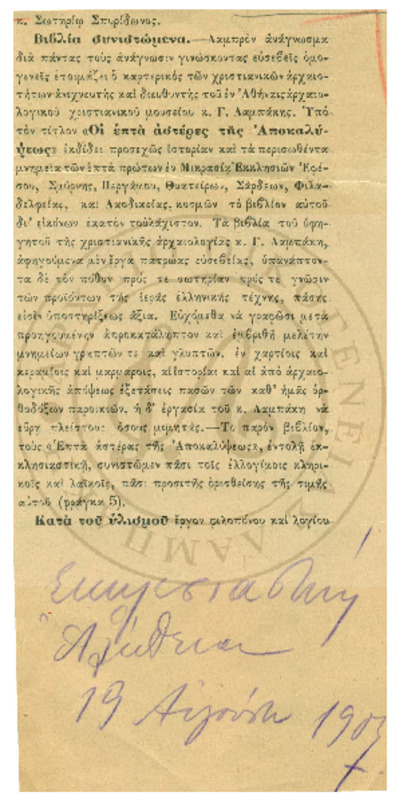 κ. Σωτηρίῳ Σπυρίδωνος.
Βιβλία συνιστώμενα.—Λαμπρὸν ἀνάγνωσμα
διὰ πάντας τοὺς ἀνάγνωσιν γινώσκοντας εὐσεβεῖς ὁμο-
γενεῖς ἑτοιμάζει ὁ καρτερικὸς τῶν χριστιανικῶν ἀρχαιο-
τήτων ἀνιχνευτὴς καὶ διευθυντὴς τοῦ ἐν Ἀθήναις ἀρχαιο-
λογικοῦ χριστιανικοῦ μουσείου κ. Γ. Λαμπάκης. Ὑπὸ
τὸν τίτλον «Οἱ ἑπτὰ ἀστέρες τῆς Ἀποκαλύ-
ψεως» ἐκδίδει προσεχῶς ἱστορίαν καὶ τὰ περισωθέντα
μνημεῖα τῶν ἑπτὰ πρώτων ἐν Μικρασίᾳ Ἐκκλησιῶν Ἐφέ-
σου, Σμύρνης, Περγάμου, Θυατείρων, Σάρδεων, Φιλα-
δελφείας, καὶ Λαοδικείας, κοσμῶν τὸ βιβλίον αὐτοῦ
δι' εἰκόνων ἑκατὸν τοὐλάχιστον. Τὰ βιβλία τοῦ ὑφη-
γητοῦ τῆς χριστιανικῆς ἀρχαιολογίας κ. Γ. Λαμπάκη,
ἀφηγούμενα μὲν ἔργα πατρῴας εὐσεβείας, ὑπανάπτον-
τα δὲ τὸν πόθον πρός τε σωτηρίαν πρός τε γνῶσιν
τῶν προϊόντων τῆς ἱερᾶς ἑλληνικῆς τέχνης, πάσης
εἰσὶν ὑποστηρίξεως ἄξια. Εὐχόμεθα νὰ γραφῶσι μετὰ
προηγουμένην ἀπροκατάληπτον καὶ ἐμβριθῆ μελέτην
μνημείων γραπτῶν τε καὶ γλυπτῶν. ἐν χαρτίοις καὶ
κεραμίοις καὶ μαρμάροις, αἱ ἱστορίαι καὶ αἱ ἀπὸ ἀρχαιο-
λογικῆς ἀπόψεως ἐξετάσεις πασῶν τῶν καθ' ἡμᾶς ὀρ-
θοδόξων παροικιῶν. ἡ δ' ἐργασία τοῦ κ. Λαμπάκη νὰ
εὕρῃ πλείστους ὅσους μιμητάς.—Τὸ παρὸν βιβλίον,
τοὺς «Ἑπτὰ ἀστέρας τῆς Ἀποκαλύψεως», ἐντολῇ ἐκ-
κλησιαστικῇ, συνιστῶμεν πᾶσι τοῖς ἐλλογίμοις κληρι-
κοῖς καὶ λαϊκοῖς, πᾶσι προσιτῆς ὁρισθείσης τῆς τιμῆς
αὐτοῦ (φράγκα 5).
Κατὰ τοῦ ὑλισμοῦ ἔργον φιλοπόνου καὶ λογίου
Ἐκκλησιαστική
Ἀλήθεια
19 Αὐγούστ 1907